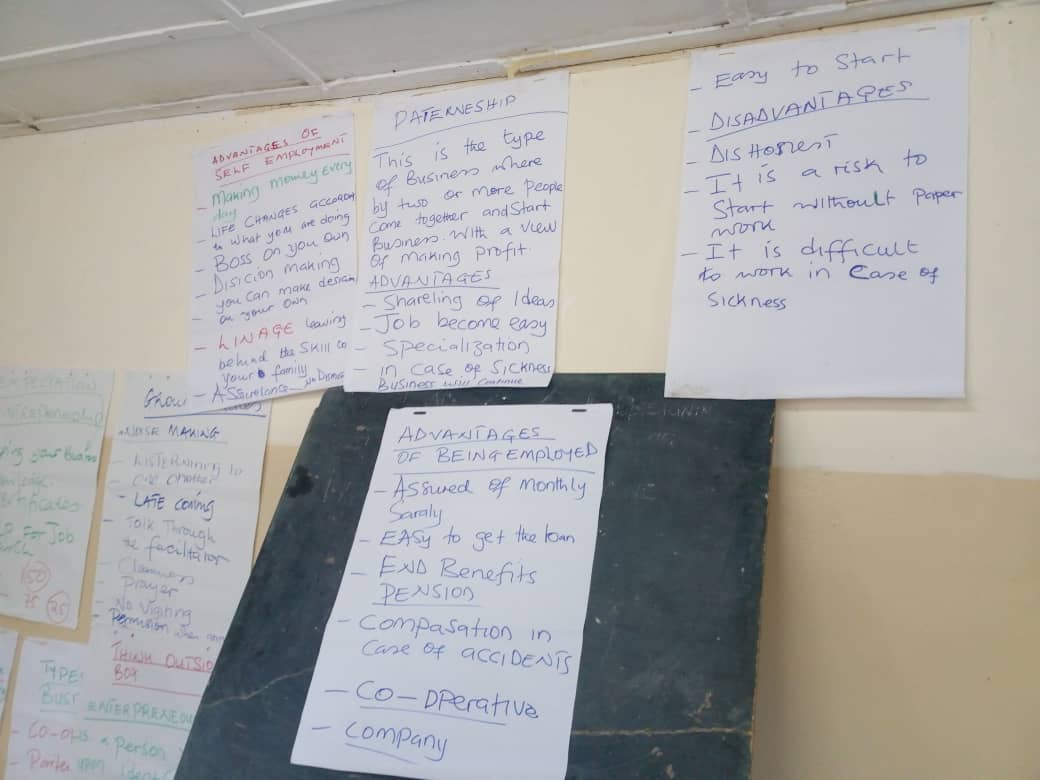 ADVANTAGES OF
SELF EMPLOYMENT
- Making money every
day
- LIFE CHANGES ACCORD
to what you are doing
- BOSS ON YOU OWN
- DISICION MAKING
- you can make design
on your own
- LINAGE leaving
behind the SKILL to
your family
- ASSURANCE - NO
PATERNESHIP
This is the type
of Business where
by two or more People
come together and Start
Business. With a view
Of making Profit.
ADVANTAGES
- Shareling Of Ideas
- Job become easy
- Specialization
- in case of Sickness
Business will Continue
- Easy to Start
- DISADVANTAGES
- DISHOREST
- It is a risk to
Start without Paper
work
- It is difficult
to work in Case of
Sickness
ADVANTAGES
OF BEING EMPLOYED
- Assured of Monthly
Saraly
- EASy to get the loan
- END Benefits
PENSION
- COMPASATION in
Case of ACCIDENTS
- CO-OPerative
- Company
NOISE MAKING
- LISTERNING to
- LATE COMING
- Talk Through
the facilitator
- Cleanness
- Prayer
- No Visiting
- Permission when
THINK OUTSID
BOX
your Business
FOR JOB
50
25
TYPES
BUSI
ENTERPRENEOU
- CO-OP
a person